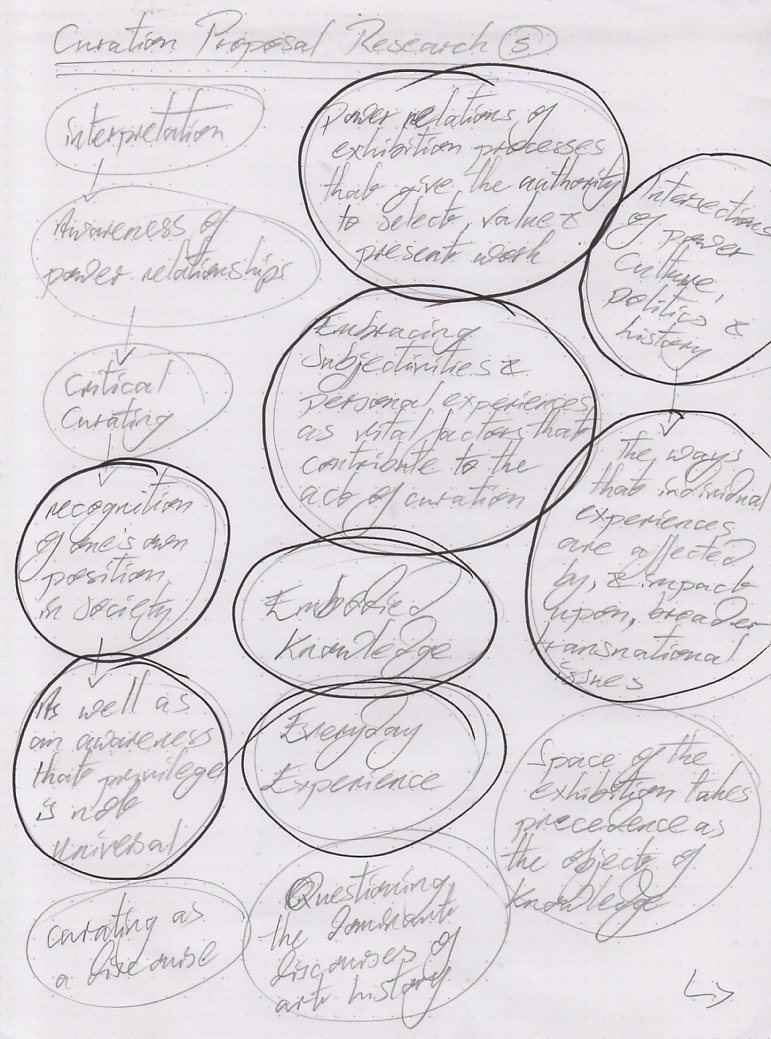 Curation Proposal Research 5
interpretation
Awareness of
power relationships
Critical
Curating
recognition
of one's own
position
in society
As well as
an awareness
that privilege
is not
universal
curating as
a discourse
power relations of
exhibition processes
that give the authority
to select, value &
present work
Embracing
Subjectivities &
personal experiences
as vital factors that
contribute to the
act of curation
Embodied
Knowledge
Everyday
Experience
Questioning
the dominant
discourses of
art history
Intersections
of power
culture,
politics &
history
the ways
that individual
experiences
are affected
by, & impact
upon, broader
transnational
issues
Space of the
exhibition takes
precedence as
the objects of
knowledge